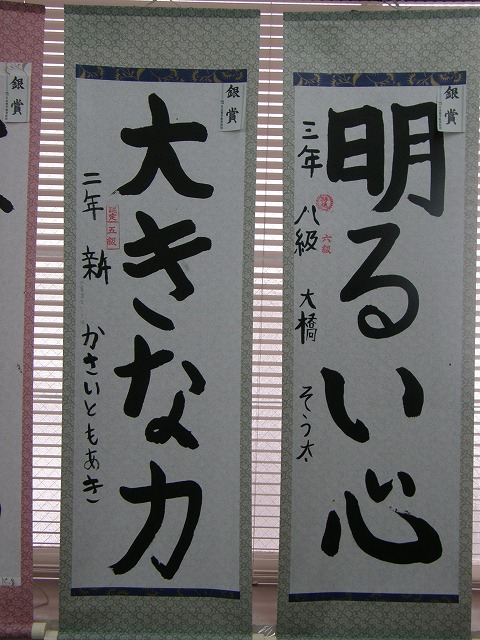 銀賞
明るい心
三年 八級 大橋 そう太
六級
銀賞
大きな力
二年 新 かさいともあき
認定五級
銀賞